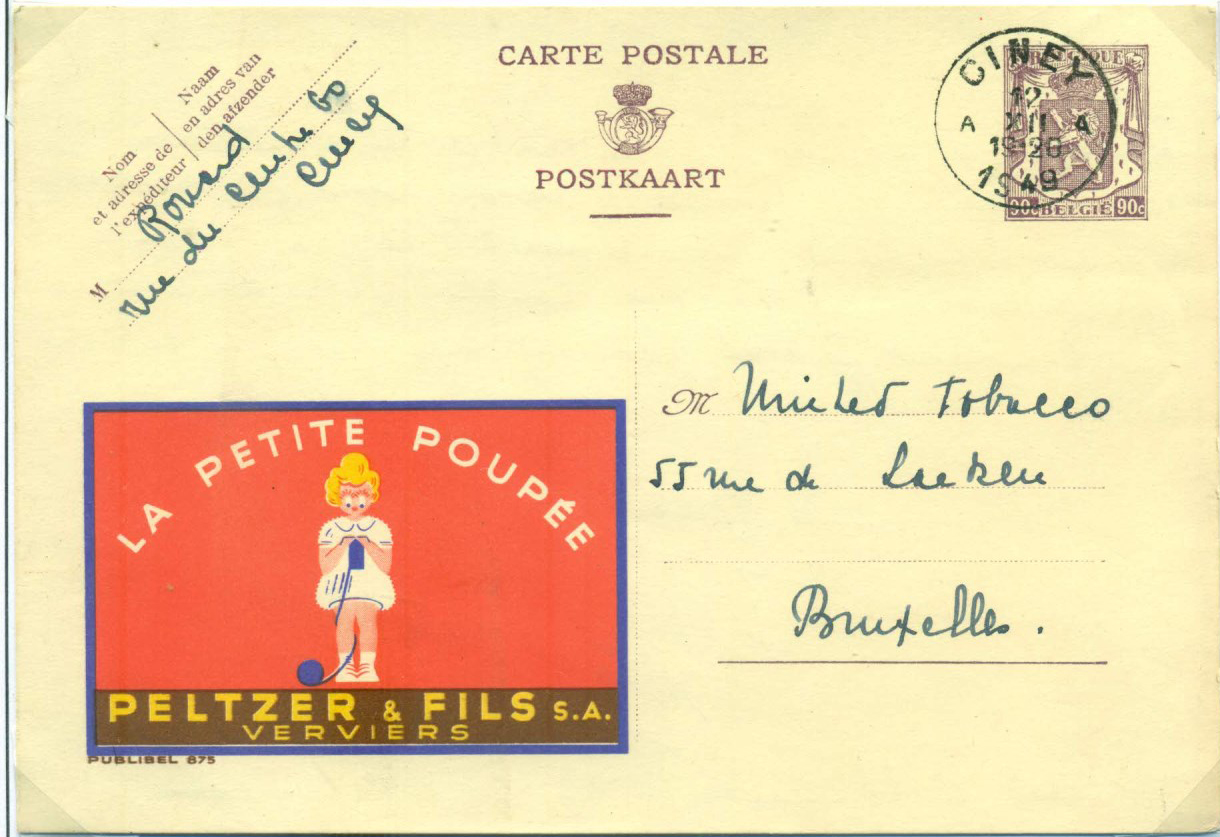 CARTE POSTALE
POSTKAART
Nom
et adresse de
l'expéditeur
Naam
en adres van
den afzender
M Rouard
rue du Centre 60
Ciney
CINEY
12
A XII A
19-20
1949
BELGIQUE
90c BELGIË 90c
M United Tobacco
55 rue de Laeken
Bruxelles.
LA PETITE POUPÉE
PELTZER & FILS S.A.
VERVIERS
PUBLIBEL 875